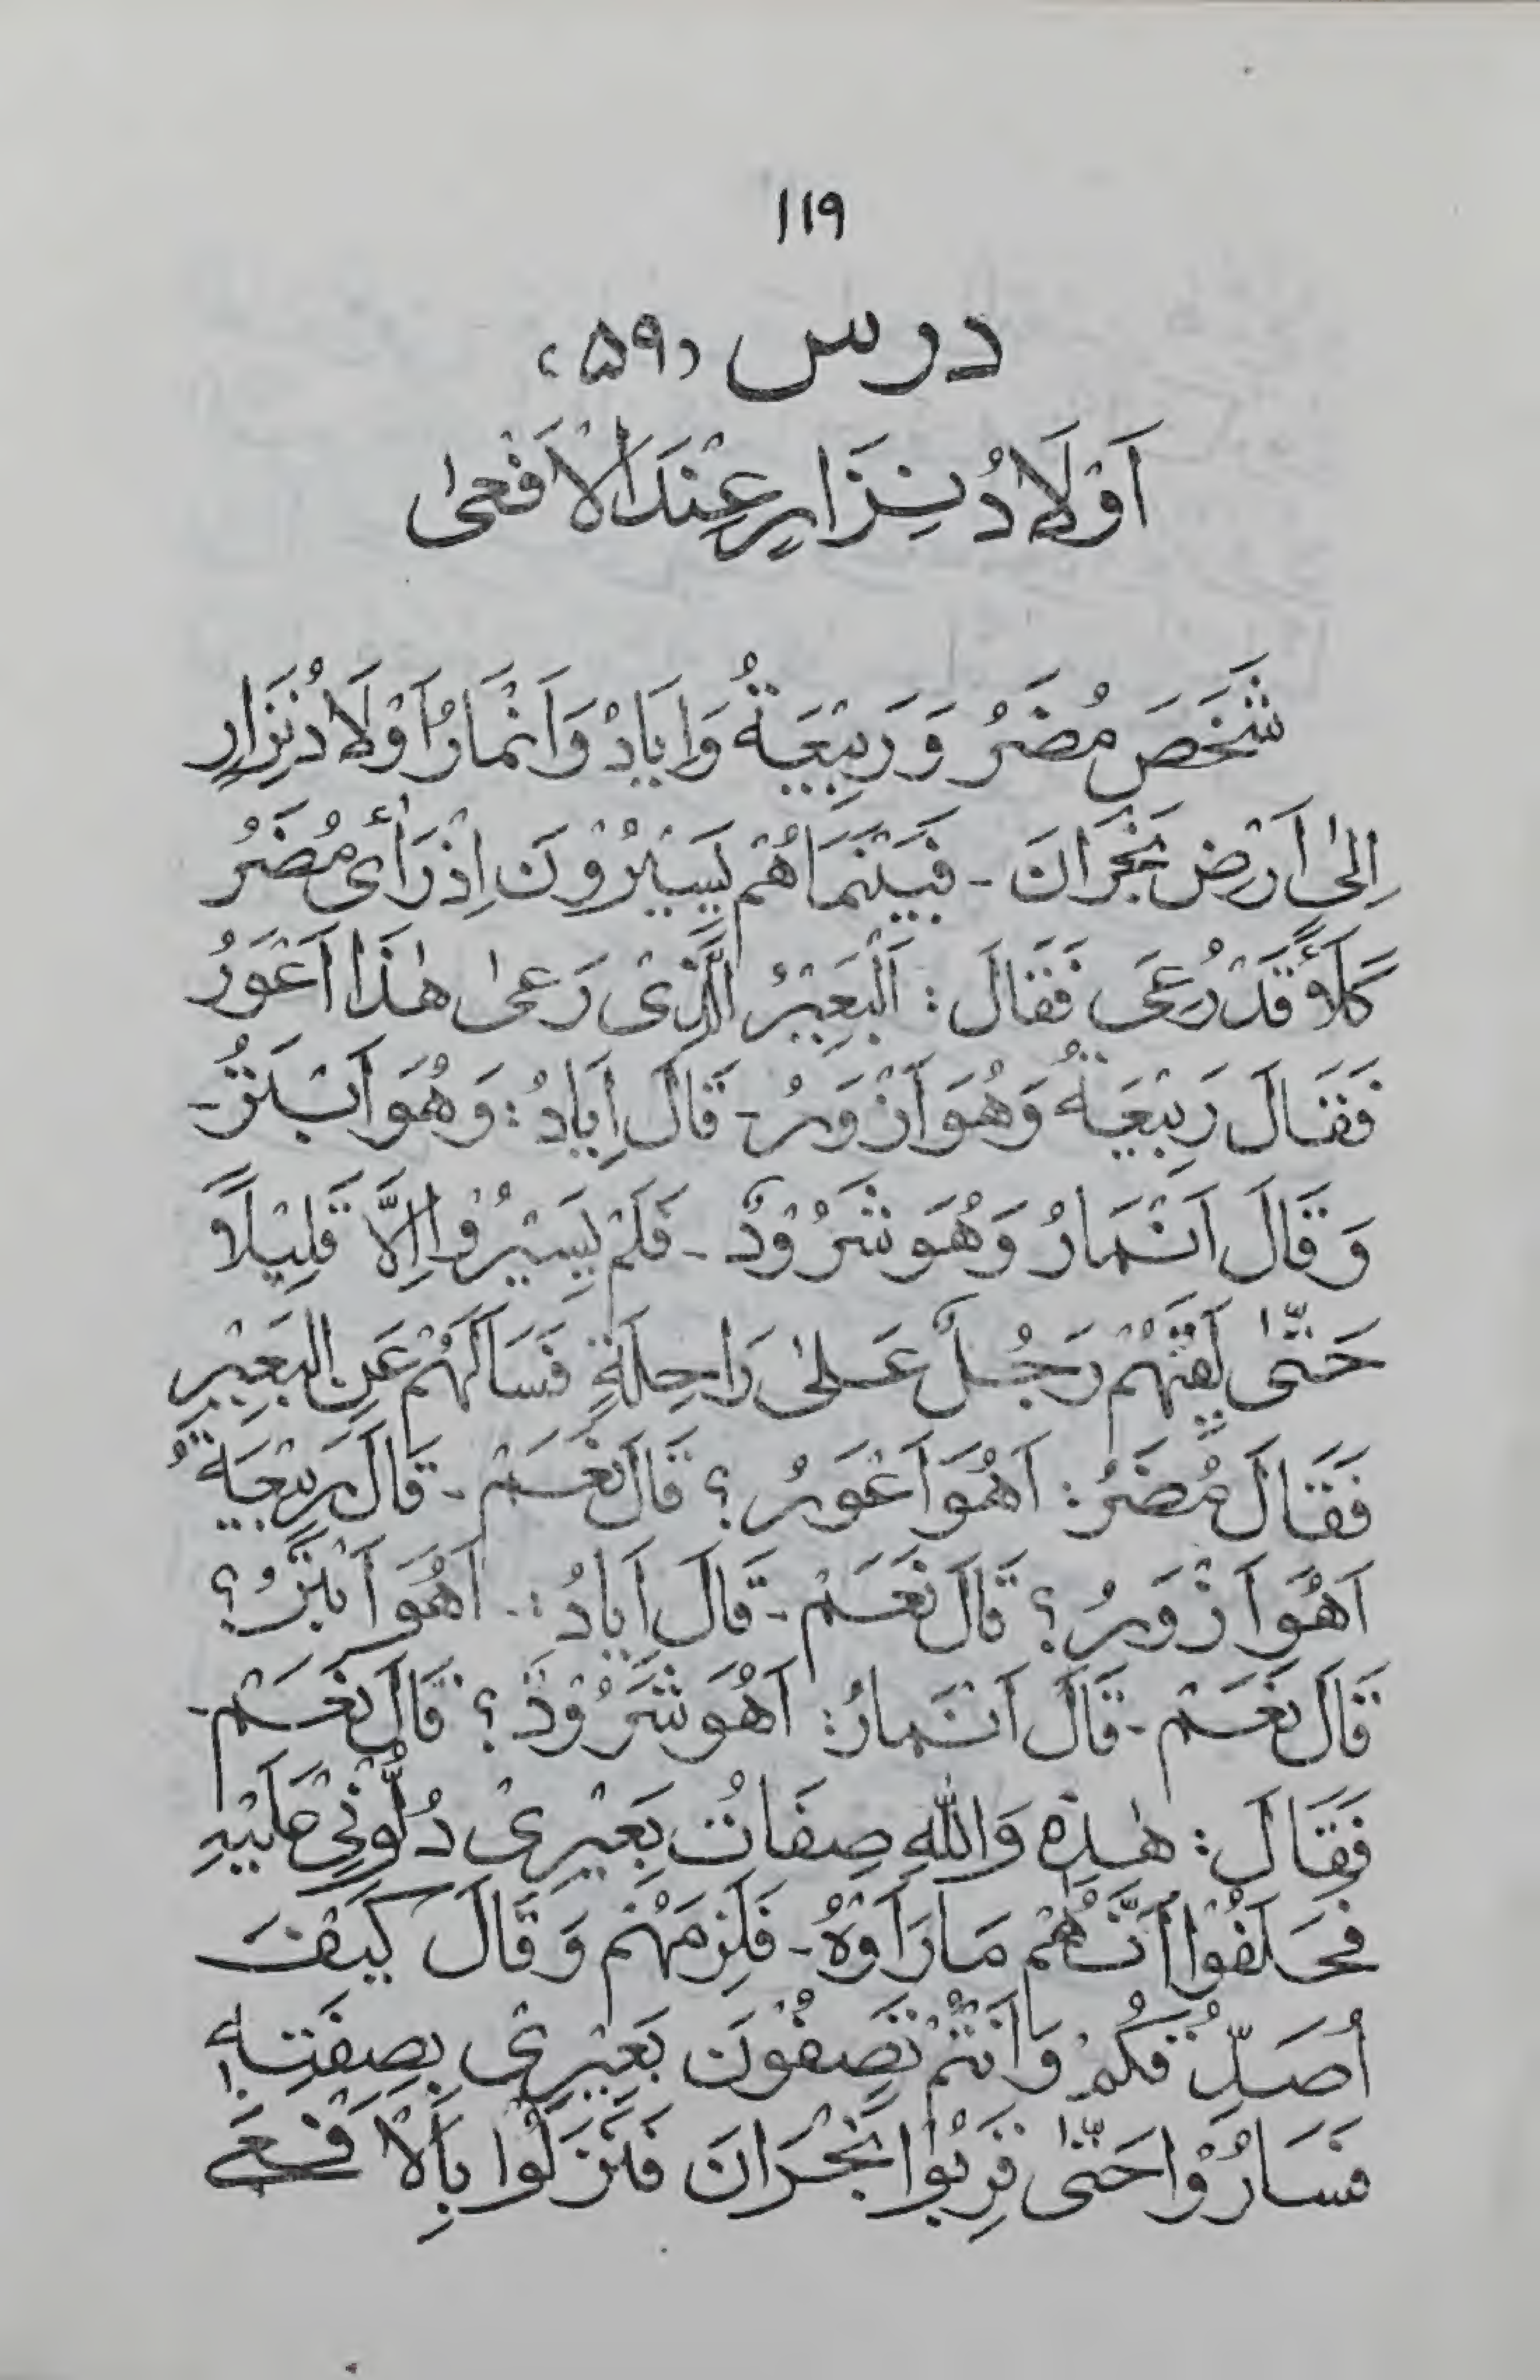 ۱۱۹
درس (۵۹)
اَوْلَادُ نِزَارٍ عِنْدَ الْاَفْعٰی
شَخَصَ مُضَرُ وَ رَبِیْعَةُ وَاِیَادُ وَاَنْمَارُ اَوْلَادُ نِزَارٍ
اِلٰی اَرْضِ نَجْرَانَ - فَبَیْنَمَا هُمْ یَسِیْرُوْنَ اِذْ رَأٰی مُضَرُ
كَلَأً قَدْ رُعِیَ فَقَالَ : اَلْبَعِیْرُ الَّذِیْ رَعٰی هٰذَا اَعْوَرُ
فَقَالَ رَبِیْعَةُ وَهُوَ اَزْوَرُ - قَالَ اِیَادُ : وَهُوَ اَبْتَرُ -
وَقَالَ اَنْمَارُ وَهُوَ شَرُوْدٌ - فَلَمْ یَسِیْرُوْا اِلَّا قَلِیْلًا
حَتّٰی لَقِیَهُمْ رَجُلٌ عَلٰی رَاحِلَةٍ فَسَاَلَهُمْ عَنِ الْبَعِیْرِ
فَقَالَ مُضَرُ : اَهُوَ اَعْوَرُ ؟ قَالَ نَعَمْ - قَالَ رَبِیْعَةُ
اَهُوَ اَزْوَرُ ؟ قَالَ نَعَمْ - قَالَ اَیَادُ :- اَهُوَ اَبْتَرُ ؟
قَالَ نَعَمْ - قَالَ اَنْمَارُ : اَهُوَ شَرُوْدٌ ؟ قَالَ نَعَمْ -
فَقَالَ : هٰذِهٖ وَاللّٰهِ صِفَاتُ بَعِیْرِیْ دُلُّوْنِیْ عَلَیْهِ
فَحَلَفُوْا اَنَّهُمْ مَا رَاَوْهُ - فَلَزِمَهُمْ وَقَالَ كَیْفَ
اُصَدِّقُكُمْ وَاَنْتُمْ تَصِفُوْنَ بَعِیْرِیْ بِصِفَتِهٖ
فَسَارُوْا حَتّٰی قَرِبُوْا نَجْرَانَ فَنَزَلُوْا بِالْاَفْعٰی